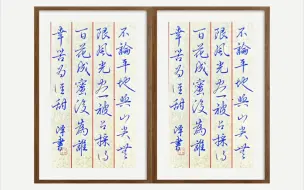 不論平地與山尖無
限風光盡被占採得
百花成蜜後為誰
辛苦為誰甜 書
不論平地與山尖無
限風光盡被占採得
百花成蜜後為誰
辛苦為誰甜 書